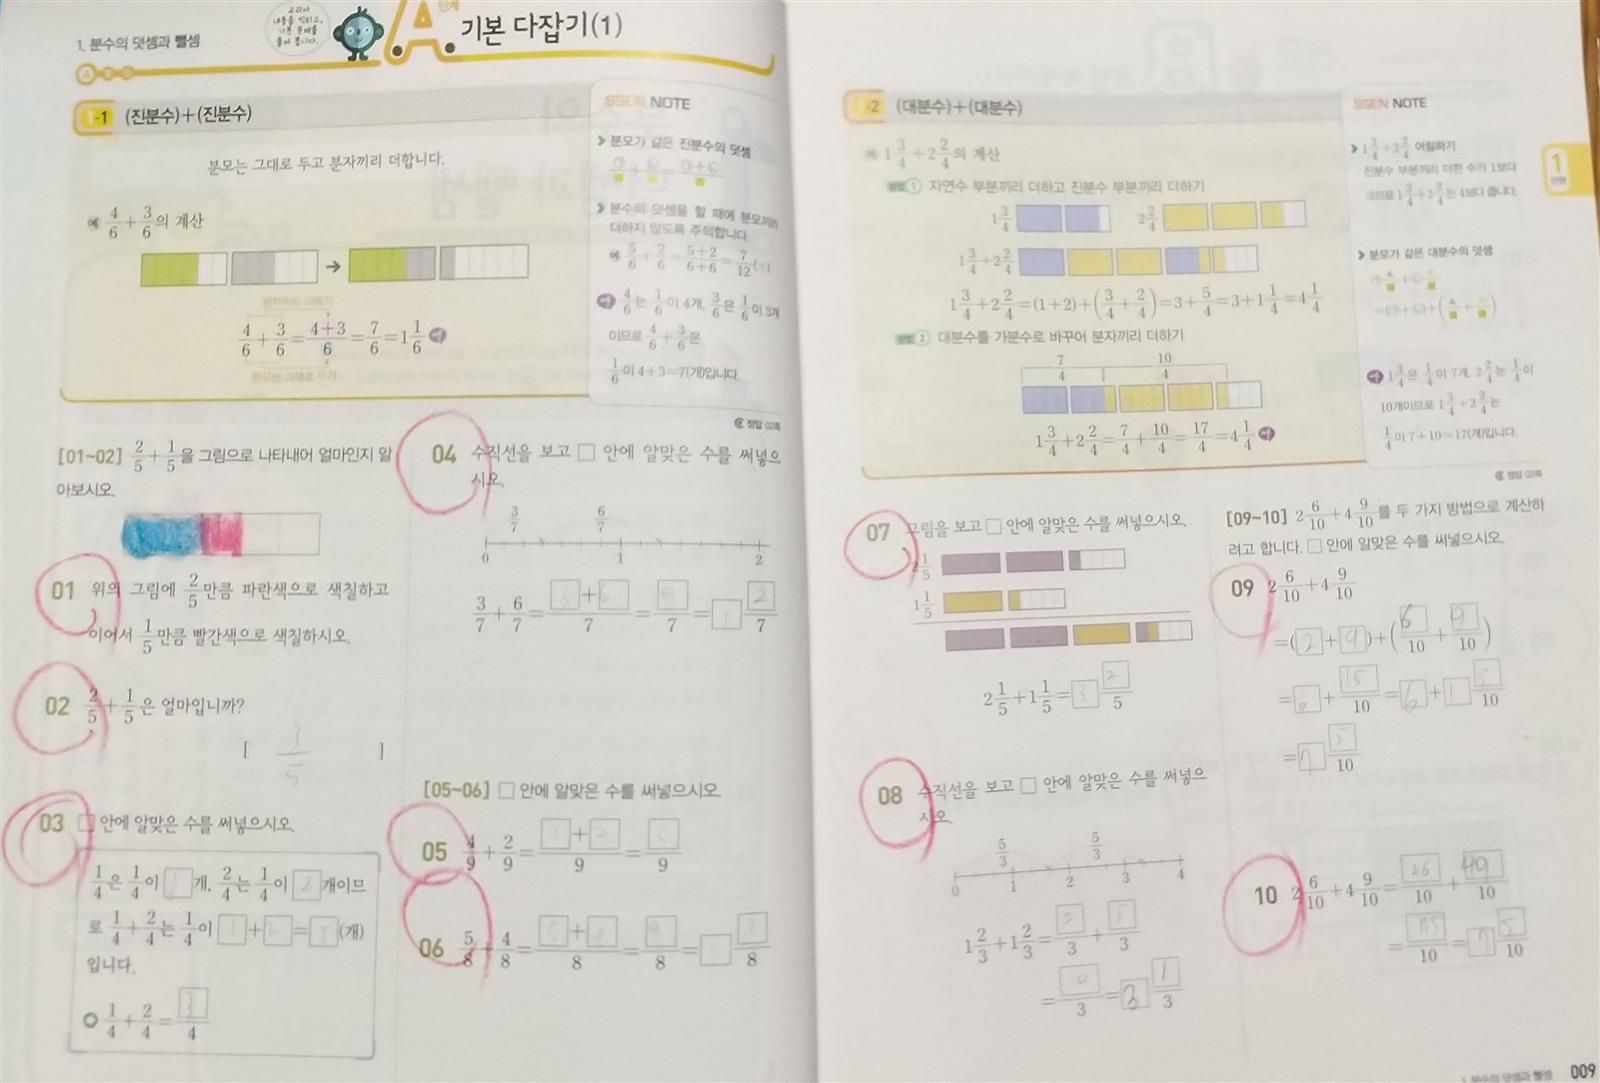 1. 분수의 덧셈과 뺄셈
교과서
내용을 익히고,
기본 문제를
풀어 봅니다.
A 단계
기본 다잡기(1)
1-1 (진분수)+(진분수)
분모는 그대로 두고 분자끼리 더합니다.
예 4/6 + 3/6의 계산
분자끼리 더하기
4/6 + 3/6 = (4+3)/6 = 7/6 = 1 1/6
분모는 그대로 두기
SSEN NOTE
분모가 같은 진분수의 덧셈
분수의 덧셈을 할 때에 분모끼리
더하지 않도록 주의합니다.
예 5/6 + 2/6 = (5+2)/(6+6) = 7/12 (×)
4/6는 1/6이 4개, 3/6은 1/6이 3개
이므로 4/6 + 3/6은
1/6이 4+3=7(개)입니다.
정답 02쪽
[01~02] 2/5 + 1/5을 그림으로 나타내어 얼마인지 알
아보시오.
01 위의 그림에 2/5만큼 파란색으로 색칠하고
이어서 1/5만큼 빨간색으로 색칠하시오.
02 2/5 + 1/5은 얼마입니까?
[ 3/5 ]
03 □ 안에 알맞은 수를 써넣으시오.
1/4은 1/4이 1개, 2/4는 1/4이 2개이므
로 1/4 + 2/4는 1/4이 1+2=3(개)
입니다.
1/4 + 2/4 = 3/4
04 수직선을 보고 □ 안에 알맞은 수를 써넣으
시오.
3/7 6/7
0 1 2
3/7 + 6/7 = (3+6)/7 = 9/7 = 1 2/7
[05~06] □ 안에 알맞은 수를 써넣으시오.
05 4/9 + 2/9 = (□+2)/9 = 6/9
06 5/8 + 4/8 = (5+□)/8 = 9/8 = □ □/8
1-2 (대분수)+(대분수)
예 1 3/4 + 2 2/4의 계산
방법 1 자연수 부분끼리 더하고 진분수 부분끼리 더하기
1 3/4 2 2/4
1 3/4 + 2 2/4
1 3/4 + 2 2/4 = (1+2) + (3/4 + 2/4) = 3 + 5/4 = 3 + 1 1/4 = 4 1/4
방법 2 대분수를 가분수로 바꾸어 분자끼리 더하기
7/4 10/4
1 3/4 + 2 2/4 = 7/4 + 10/4 = 17/4 = 4 1/4
SSEN NOTE
1 3/4 + 2 2/4 어림하기
진분수 부분끼리 더한 수가 1보다
크므로 1 3/4 + 2 2/4는 4보다 큽니다.
분모가 같은 대분수의 덧셈
1 3/4은 1/4이 7개, 2 2/4는 1/4이
10개이므로 1 3/4 + 2 2/4는
1/4이 7+10=17(개)입니다.
정답 02쪽
1
단원
07 그림을 보고 □ 안에 알맞은 수를 써넣으시오.
2 1/5
1 1/5
2 1/5 + 1 1/5 = 3 2/5
08 수직선을 보고 □ 안에 알맞은 수를 써넣으
시오.
5/3 5/3
0 1 2 3 4
1 2/3 + 1 2/3 = 5/3 + 5/3
= □/3 = 3 1/3
[09~10] 2 6/10 + 4 9/10를 두 가지 방법으로 계산하
려고 합니다. □ 안에 알맞은 수를 써넣으시오.
09 2 6/10 + 4 9/10
=(2+4)+(6/10 + 9/10)
=6+15/10=6+1 5/10
=7 5/10
10 2 6/10 + 4 9/10 = 26/10 + 49/10
= □/10 = 7 5/10
1. 분수의 덧셈과 뺄셈 009